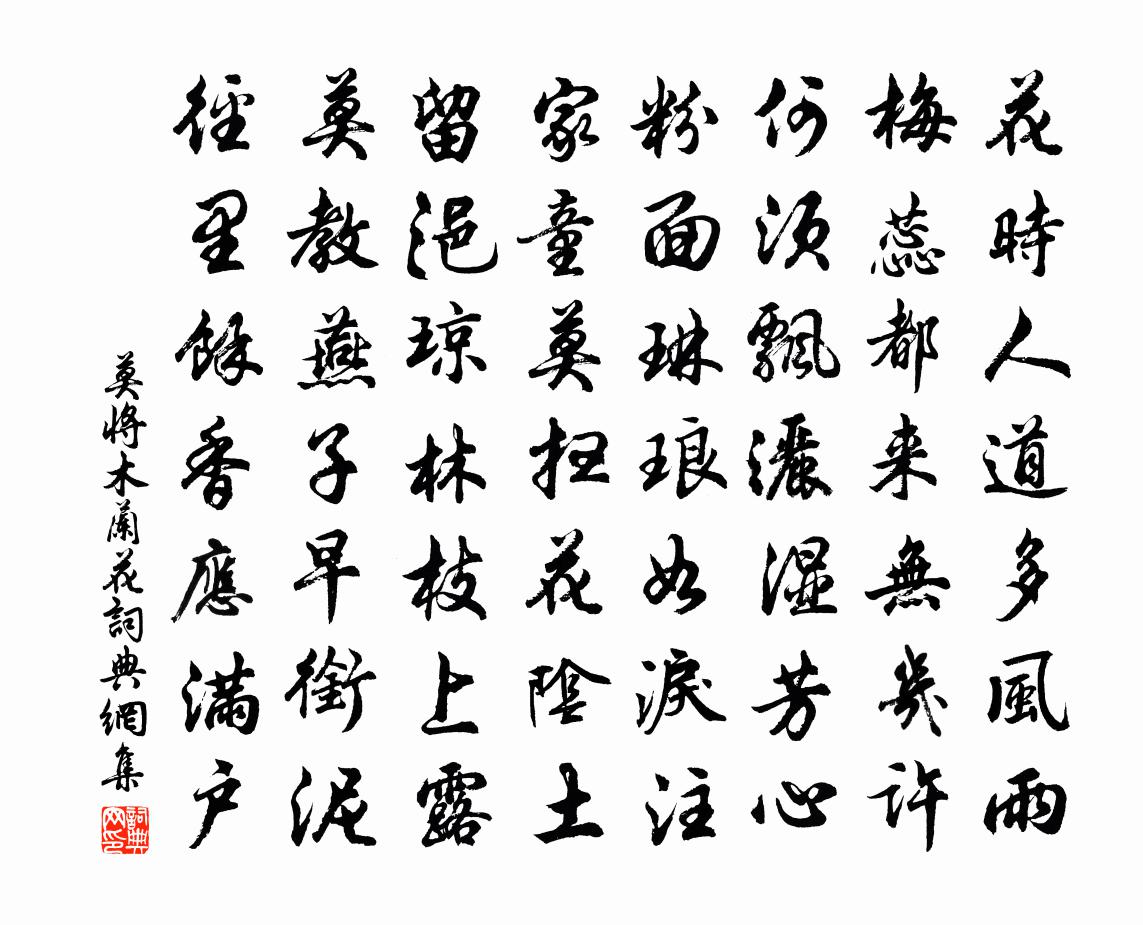 花時人道多風雨
梅蕊都来無幾許
何須飄灑濕芳心
粉面琳琅如淚注
家童莫掃花陰土
留浥瓊林枝上露
莫教燕子早銜泥
徑里餘香應滿户
莫將木蘭花詞典網集
詞典网印